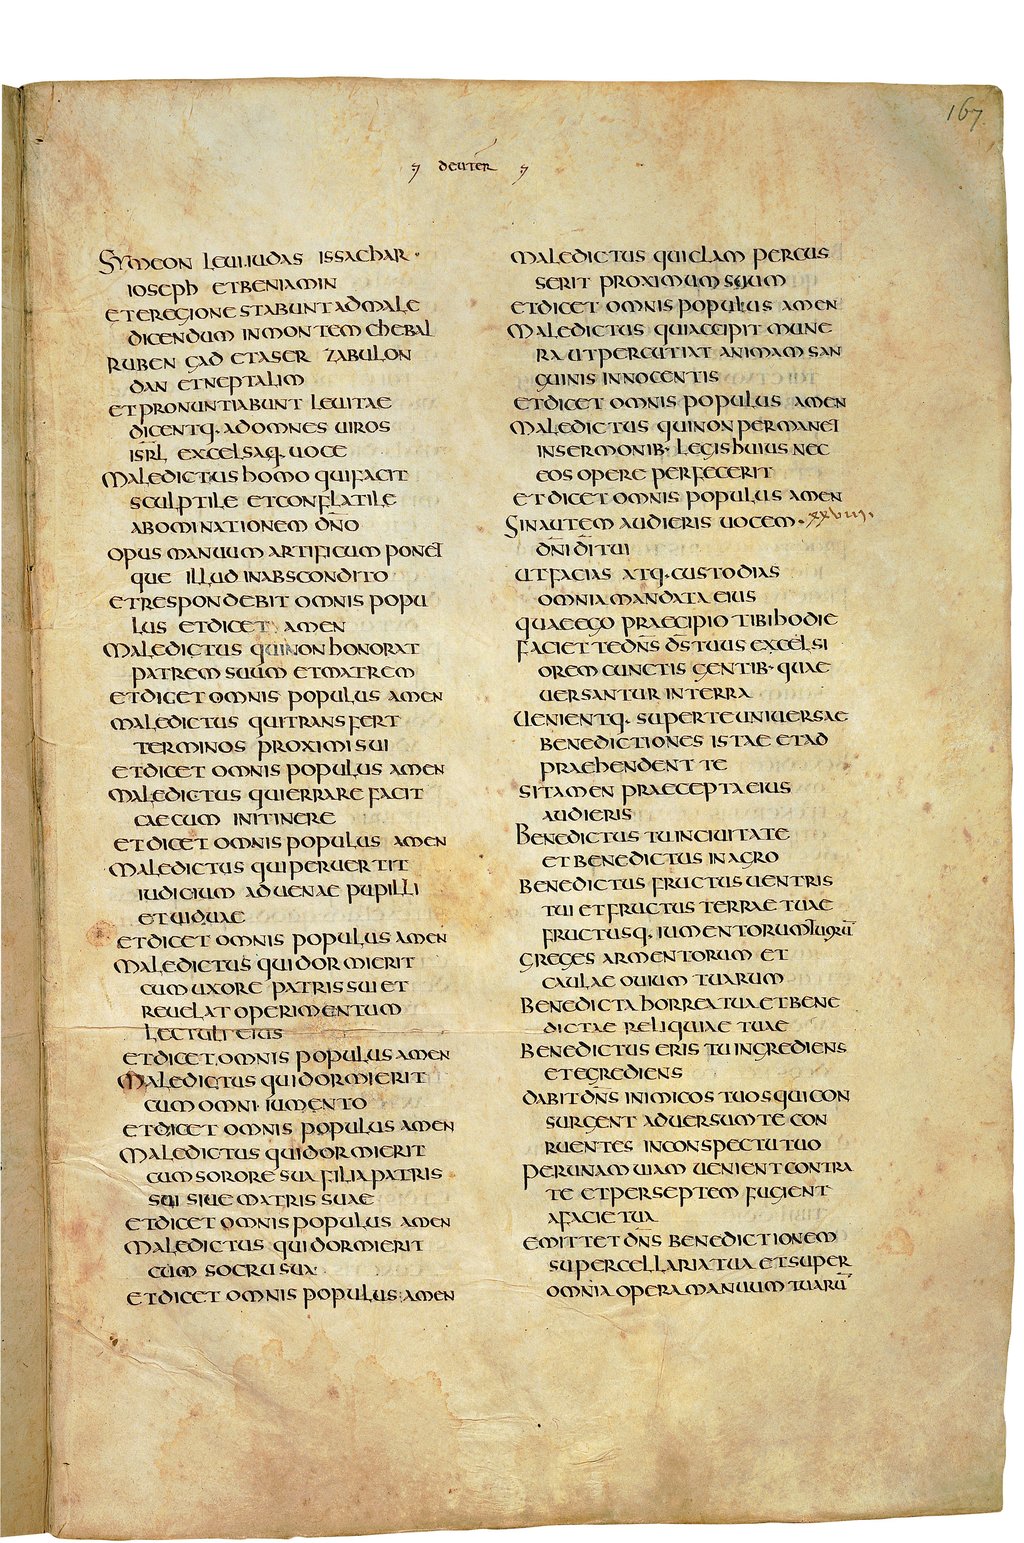 167
deuter
Symeon leui iudas issachar ·
ioseph et beniamin
et e regione stabunt ad male
dicendum in montem chebal
ruben gad et aser zabulon
dan et neptalim
et pronuntiabunt leuitae
dicentq· ad omnes uiros
isrl excelsaq· uoce
maledictus homo qui facit
sculptile et conflatile
abominationem dno
opus manuum artificum ponet
que illud in abscondito
et respondebit omnis popu
lus et dicet amen
maledictus qui non honorat
patrem suum et matrem
et dicet omnis populus amen
maledictus qui transfert
terminos proximi sui
et dicet omnis populus amen
maledictus qui errare facit
caecum in itinere
et dicet omnis populus amen
maledictus qui peruertit
iudicium aduenae pupilli
et uiduae
et dicet omnis populus amen
maledictus qui dormierit
cum uxore patris sui et
reuelat operimentum
lectuli eius
et dicet omnis populus amen
maledictus qui dormierit
cum omni iumento
et dicet omnis populus amen
maledictus qui dormierit
cum sorore sua filia patris
sui siue matris suae
et dicet omnis populus amen
maledictus qui dormierit
cum socru sua
et dicet omnis populus amen
maledictus qui clam percus
serit proximum suum
et dicet omnis populus amen
maledictus qui accipit mune
ra ut percutiat animam san
guinis innocentis
et dicet omnis populus amen
maledictus qui non permanet
in sermonib· legis huius nec
eos opere perfecerit
et dicet omnis populus amen
Sin autem audieris uocem · xxviii ·
dni di tui
ut facias atq· custodias
omnia mandata eius
quae ego praecipio tibi hodie
faciet te dns ds tuus excelsi
orem cunctis gentib· quae
uersantur in terra
uenientq· super te uniuersae
benedictiones istae et ad
praehendent te
si tamen praecepta eius
audieris
Benedictus tu in ciuitate
et benedictus in agro
Benedictus fructus uentris
tui et fructus terrae tuae
fructusq· iumentorum tuorū
greges armentorum et
caulae ouium tuarum
Benedicta horrea tua et bene
dictae reliquiae tuae
Benedictus eris tu ingrediens
et egrediens
dabit dns inimicos tuos qui con
surgent aduersum te con
ruentes in conspectu tuo
per unam uiam uenient contra
te et per septem fugient
a facie tua
emittet dns benedictionem
super cellaria tua et super
omnia opera manuum tuarū